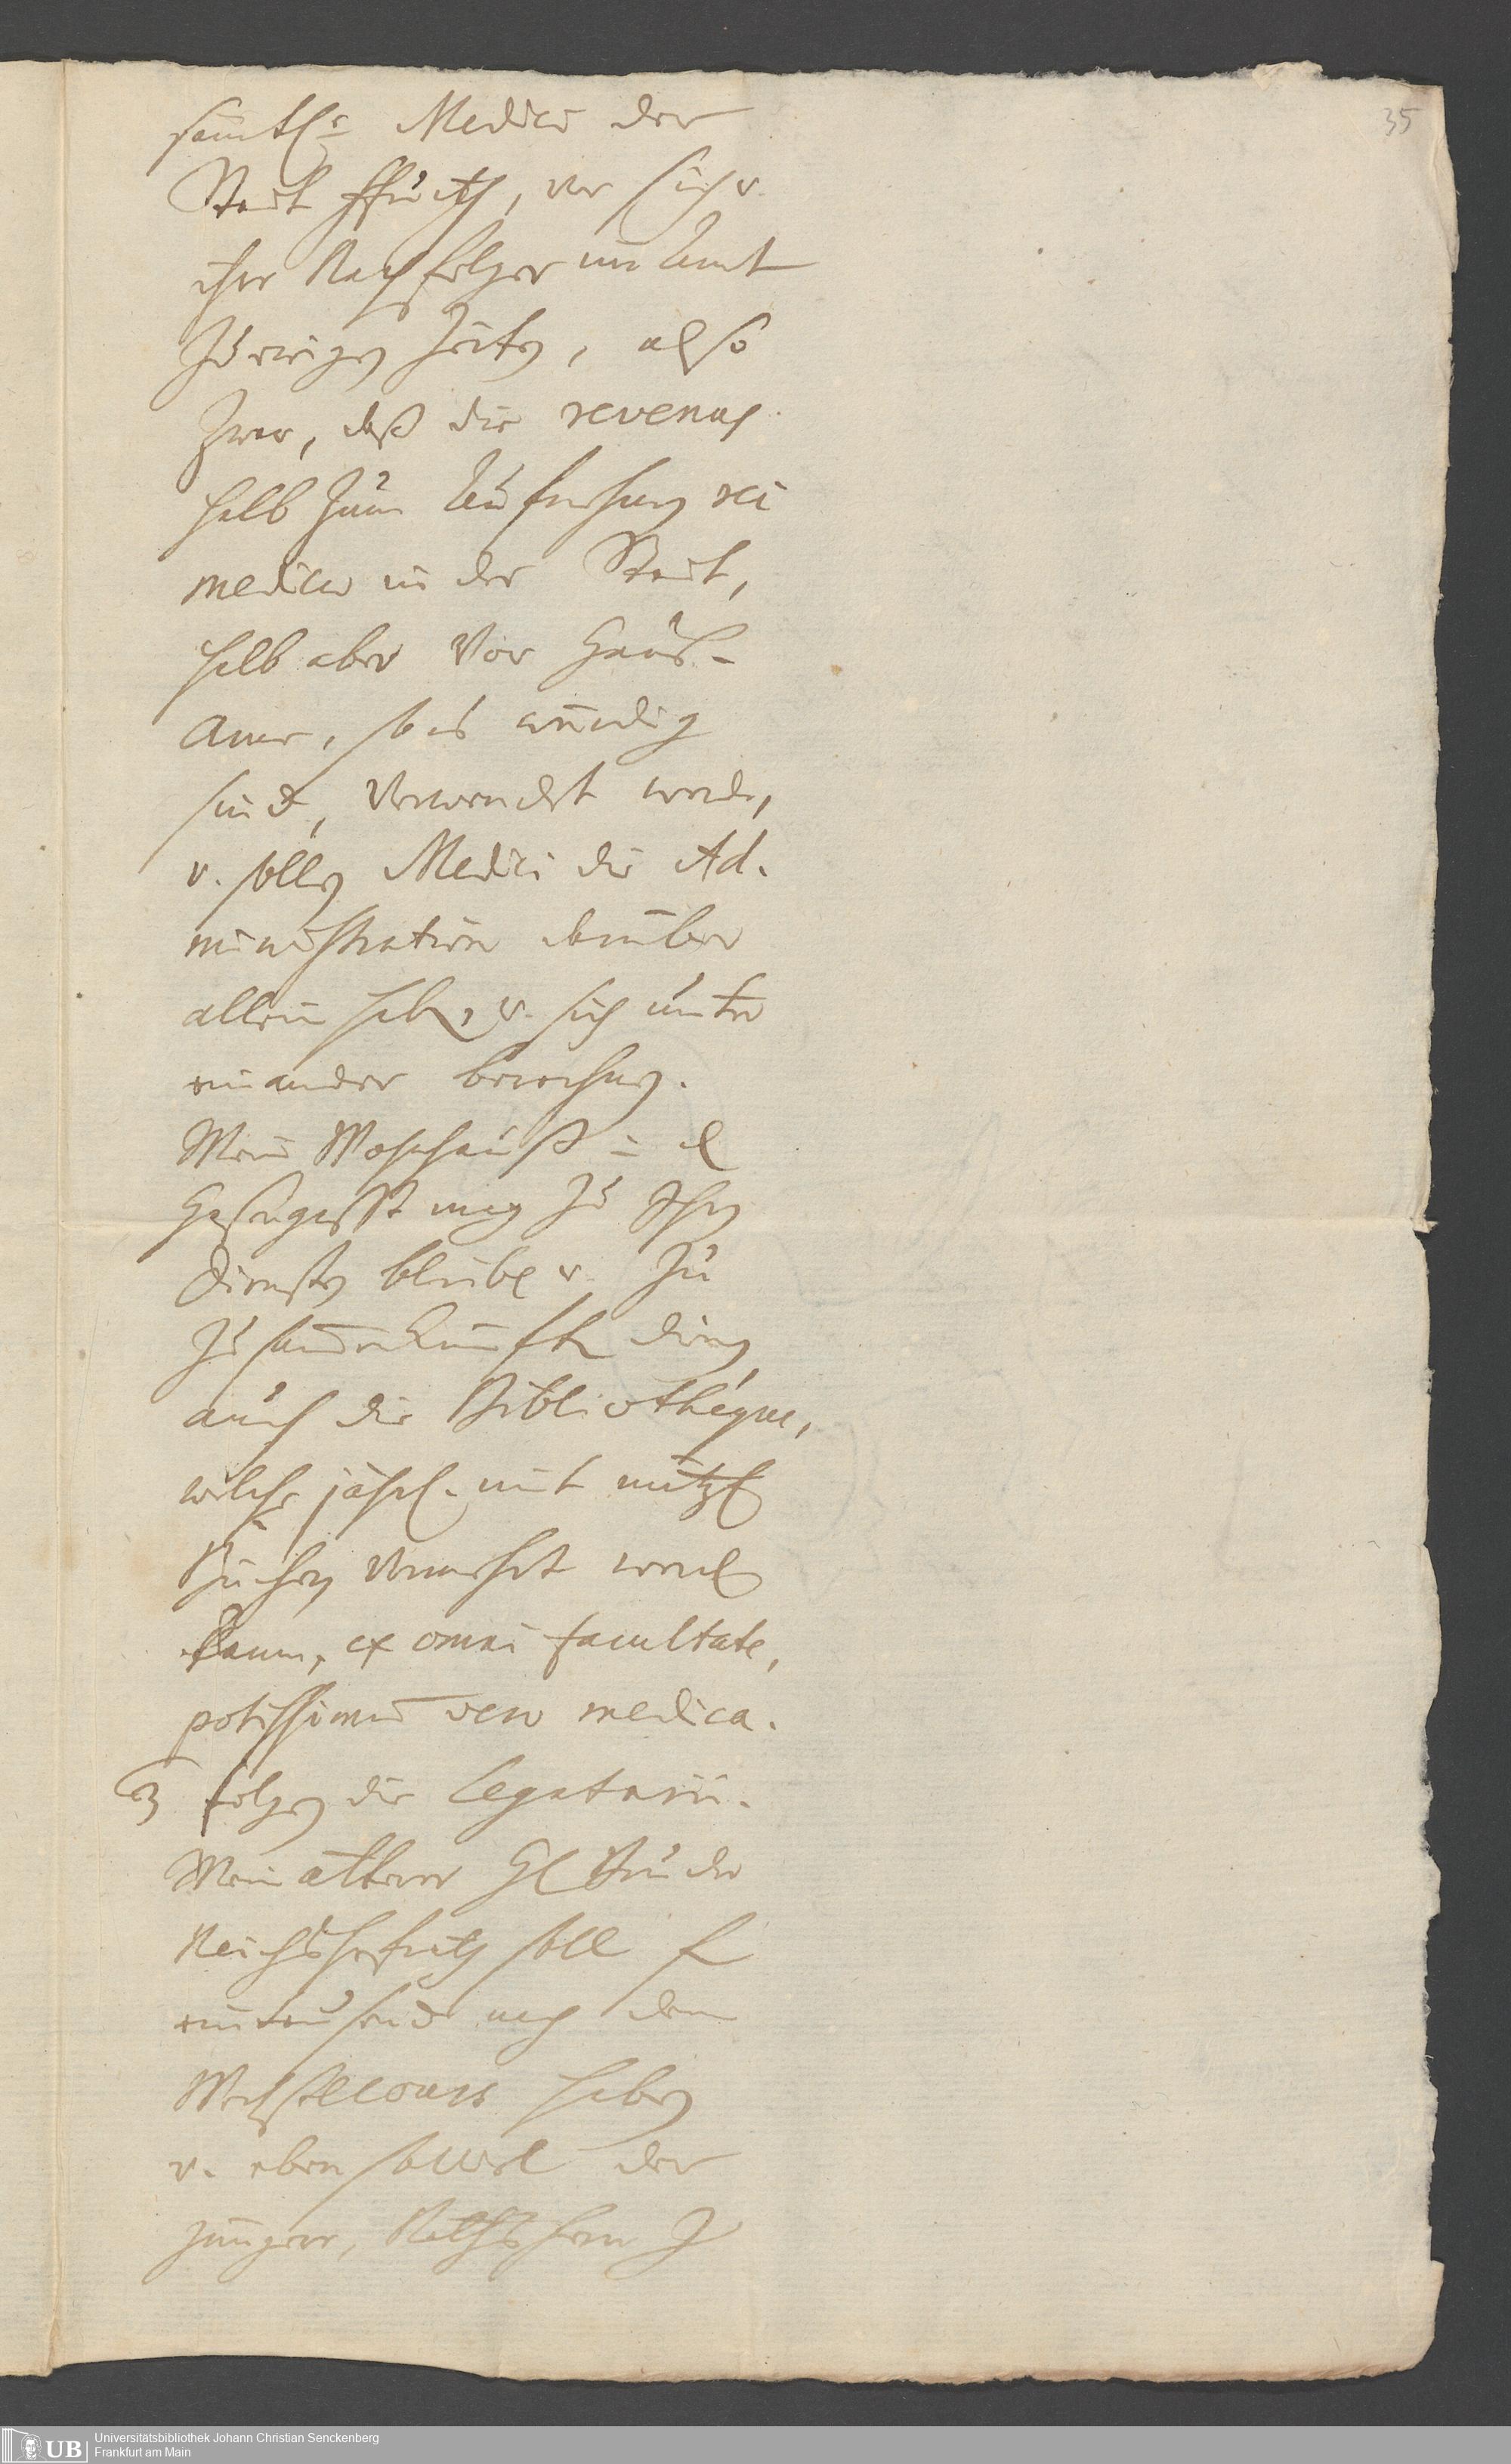 35
sämtl. Medici der
Statt ffurth, vor sich v.
ihre Nachfolger im Amt
zu ewigen Zeiten, also
zwar, daß die revenus
halb zum Aufnehmen rei
medicae in der Statt,
halb aber vor Haus-
Arme, so es würdig
sind, verwendet werde,
v. sollen Medici die Ad-
ministration darüber
allein haben, v. sich unter
einander berechnen.
Mein Wohnhauß in d
Hasengasse mag zu ihren
Diensten bleiben v. zu
zusammenkünften dienen
auch die Bibliothéque,
welche jährl. mit nützl
Büchern vermehrt werden
kann, ex omni facultate,
potissimum vero medica.
3 folgen die Legatarii.
Mein älterer H Bruder
Reichshofrath soll f
eintausend nach dem
Wechsellcours haben
v. eben soviel der
jüngere, Rathsherr J
Universitätsbibliothek Johann Christian Senckenberg
Frankfurt am Main
UB